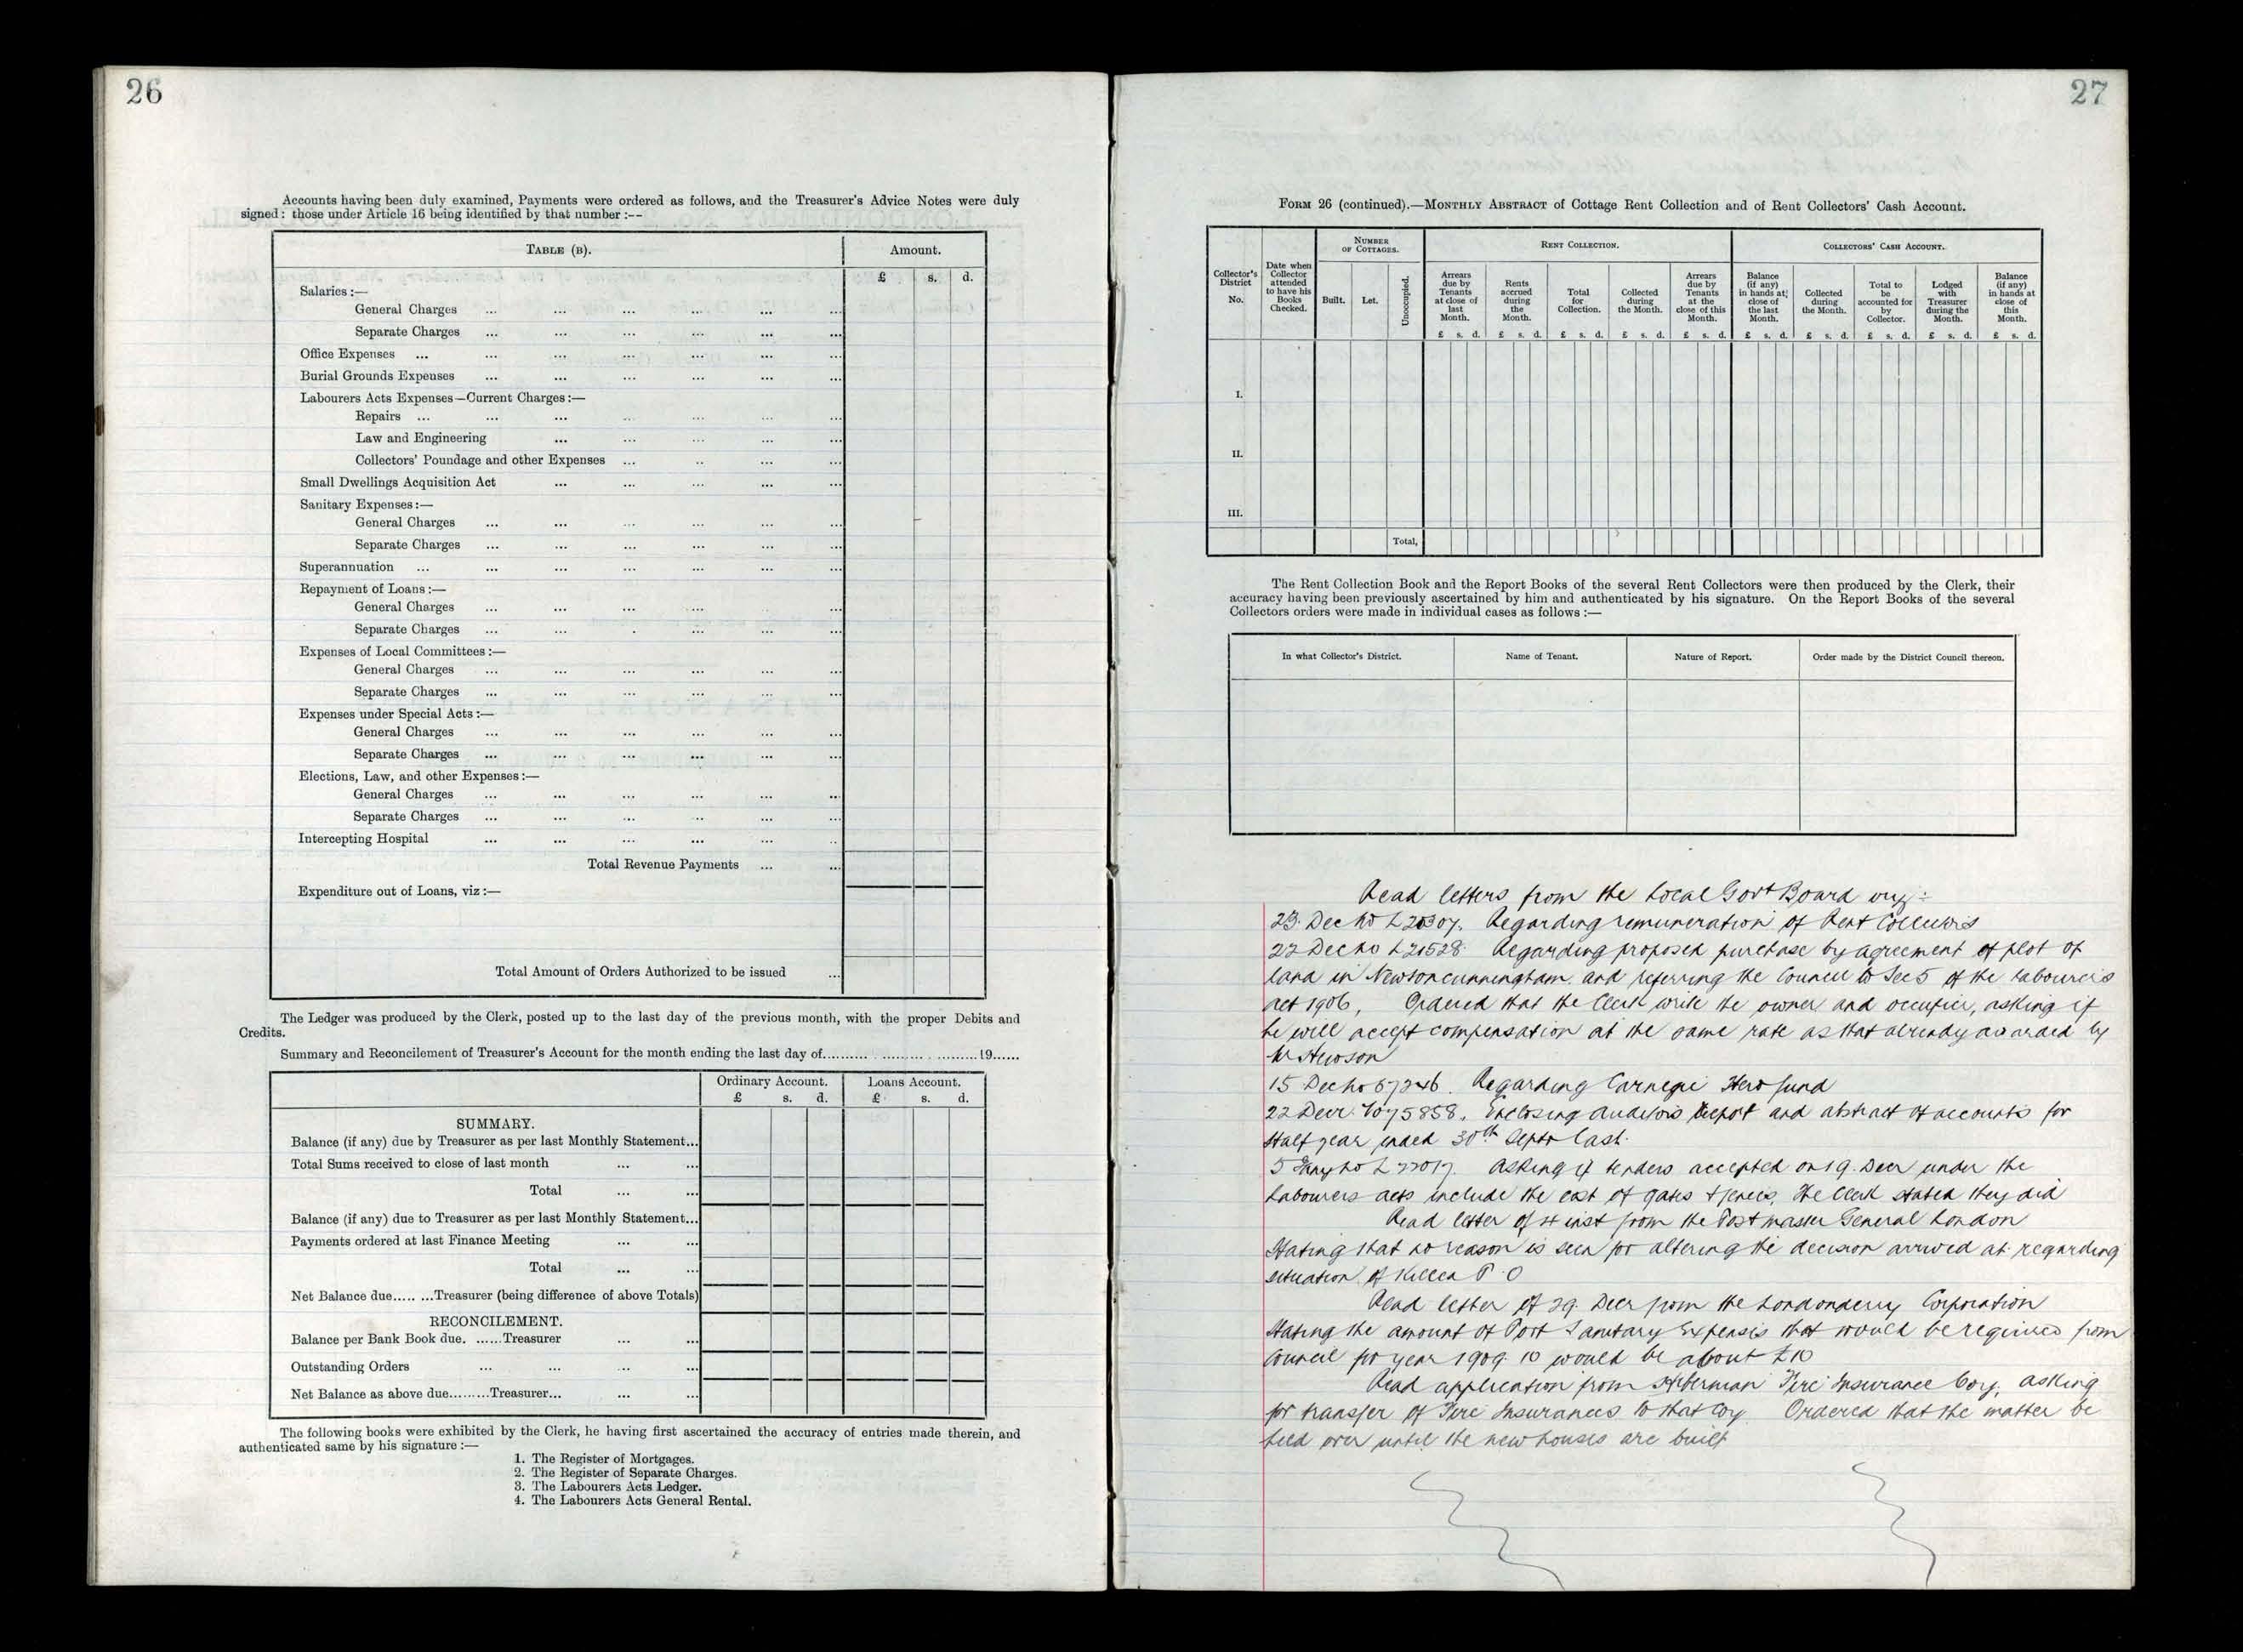 26
Accounts having been duly examined, Payments were ordered as follows, and the Treasurer's Advice Notes were duly
signed: those under Article 16 being identified by that number :--
TABLE (B). Amount.
£ s. d.
Salaries :—
General Charges ... ... ... ... ... ...
Separate Charges ... ... ... ... ... ...
Office Expenses ... ... ... ... ... ...
Burial Grounds Expenses ... ... ... ... ... ...
Labourers Acts Expenses—Current Charges :—
Repairs ... ... ... ... ... ... ...
Law and Engineering ... ... ... ... ...
Collectors' Poundage and other Expenses ... ... ... ...
Small Dwellings Acquisition Act ... ... ... ... ...
Sanitary Expenses :—
General Charges ... ... ... ... ... ...
Separate Charges ... ... ... ... ... ...
Superannuation ... ... ... ... ... ... ...
Repayment of Loans :—
General Charges ... ... ... ... ... ...
Separate Charges ... ... ... ... ... ...
Expenses of Local Committees :—
General Charges ... ... ... ... ... ...
Separate Charges ... ... ... ... ... ...
Expenses under Special Acts :—
General Charges ... ... ... ... ... ...
Separate Charges ... ... ... ... ... ...
Elections, Law, and other Expenses :—
General Charges ... ... ... ... ... ...
Separate Charges ... ... ... ... ... ...
Intercepting Hospital ... ... ... ... ... ...
Total Revenue Payments ... ...
Expenditure out of Loans, viz :—
Total Amount of Orders Authorized to be issued ...
The Ledger was produced by the Clerk, posted up to the last day of the previous month, with the proper Debits and
Credits.
Summary and Reconcilement of Treasurer's Account for the month ending the last day of.............................19......
Ordinary Account. Loans Account.
£ s. d. £ s. d.
SUMMARY.
Balance (if any) due by Treasurer as per last Monthly Statement...
Total Sums received to close of last month ... ...
Total ... ...
Balance (if any) due to Treasurer as per last Monthly Statement...
Payments ordered at last Finance Meeting ... ...
Total ... ...
Net Balance due..... ...Treasurer (being difference of above Totals)
RECONCILEMENT.
Balance per Bank Book due. ......Treasurer ... ...
Outstanding Orders ... ... ... ...
Net Balance as above due.........Treasurer... ... ...
The following books were exhibited by the Clerk, he having first ascertained the accuracy of entries made therein, and
authenticated same by his signature :—
1. The Register of Mortgages.
2. The Register of Separate Charges.
3. The Labourers Acts Ledger.
4. The Labourers Acts General Rental.
27
FORM 26 (continued).—MONTHLY ABSTRACT of Cottage Rent Collection and of Rent Collectors' Cash Account.
Collector's District No.
Date when Collector attended to have his Books Checked.
NUMBER OF COTTAGES.
Built. Let. Unoccupied.
RENT COLLECTION.
Arrears due by Tenants at close of last Month.
Rents accrued during the Month.
Total for Collection.
Collected during the Month.
Arrears due by Tenants at the close of this Month.
COLLECTORS' CASH ACCOUNT.
Balance (if any) in hands at close of the last Month.
Collected during the Month.
Total to be accounted for by Collector.
Lodged with Treasurer during the Month.
Balance (if any) in hands at close of this Month.
£ s. d. £ s. d. £ s. d. £ s. d. £ s. d. £ s. d. £ s. d. £ s. d. £ s. d. £ s. d.
I.
II.
III.
Total,
The Rent Collection Book and the Report Books of the several Rent Collectors were then produced by the Clerk, their
accuracy having been previously ascertained by him and authenticated by his signature. On the Report Books of the several
Collectors orders were made in individual cases as follows :—
In what Collector's District. Name of Tenant. Nature of Report. Order made by the District Council thereon.
Read letters from the Local Govt Board viz:
23 Dec No L Regarding remuneration of Rent Collectors
22 Dec No L21528 Regarding proposed purchase by agreement of plot of
land in Newtoncunningham and referring the Council to Sec 5 of the Labourers
Act 1906, Ordered that the Clerk write the owner and occupier, asking if
he will accept compensation at the same rate as that already awarded by
Mr Hewson
15 Dec No 67246. Regarding Carnegie Hero fund
22 Decr. No 75858. Enclosing Auditors Report and abstract of accounts for
Half year ended 30th Septr last.
5 Jany No L 22017. Asking if tenders accepted on 19. Decr under the
Labourers acts include the cost of gates & fences, the Clerk stated they did
Read letter of inst from the Postmaster General London
Stating that no reason is seen for altering the decision arrived at regarding
situation of Killea P.O
Read letter of 29. Decr from the Londonderry Corporation
Stating the amount of Port Sanitary Expenses that would be required from
Council for year 1909.10 would be about £10
Read application from Fire Insurance Coy, asking
for transfer of Fire Insurances to that Coy Ordered that the matter be
held over until the new houses are built